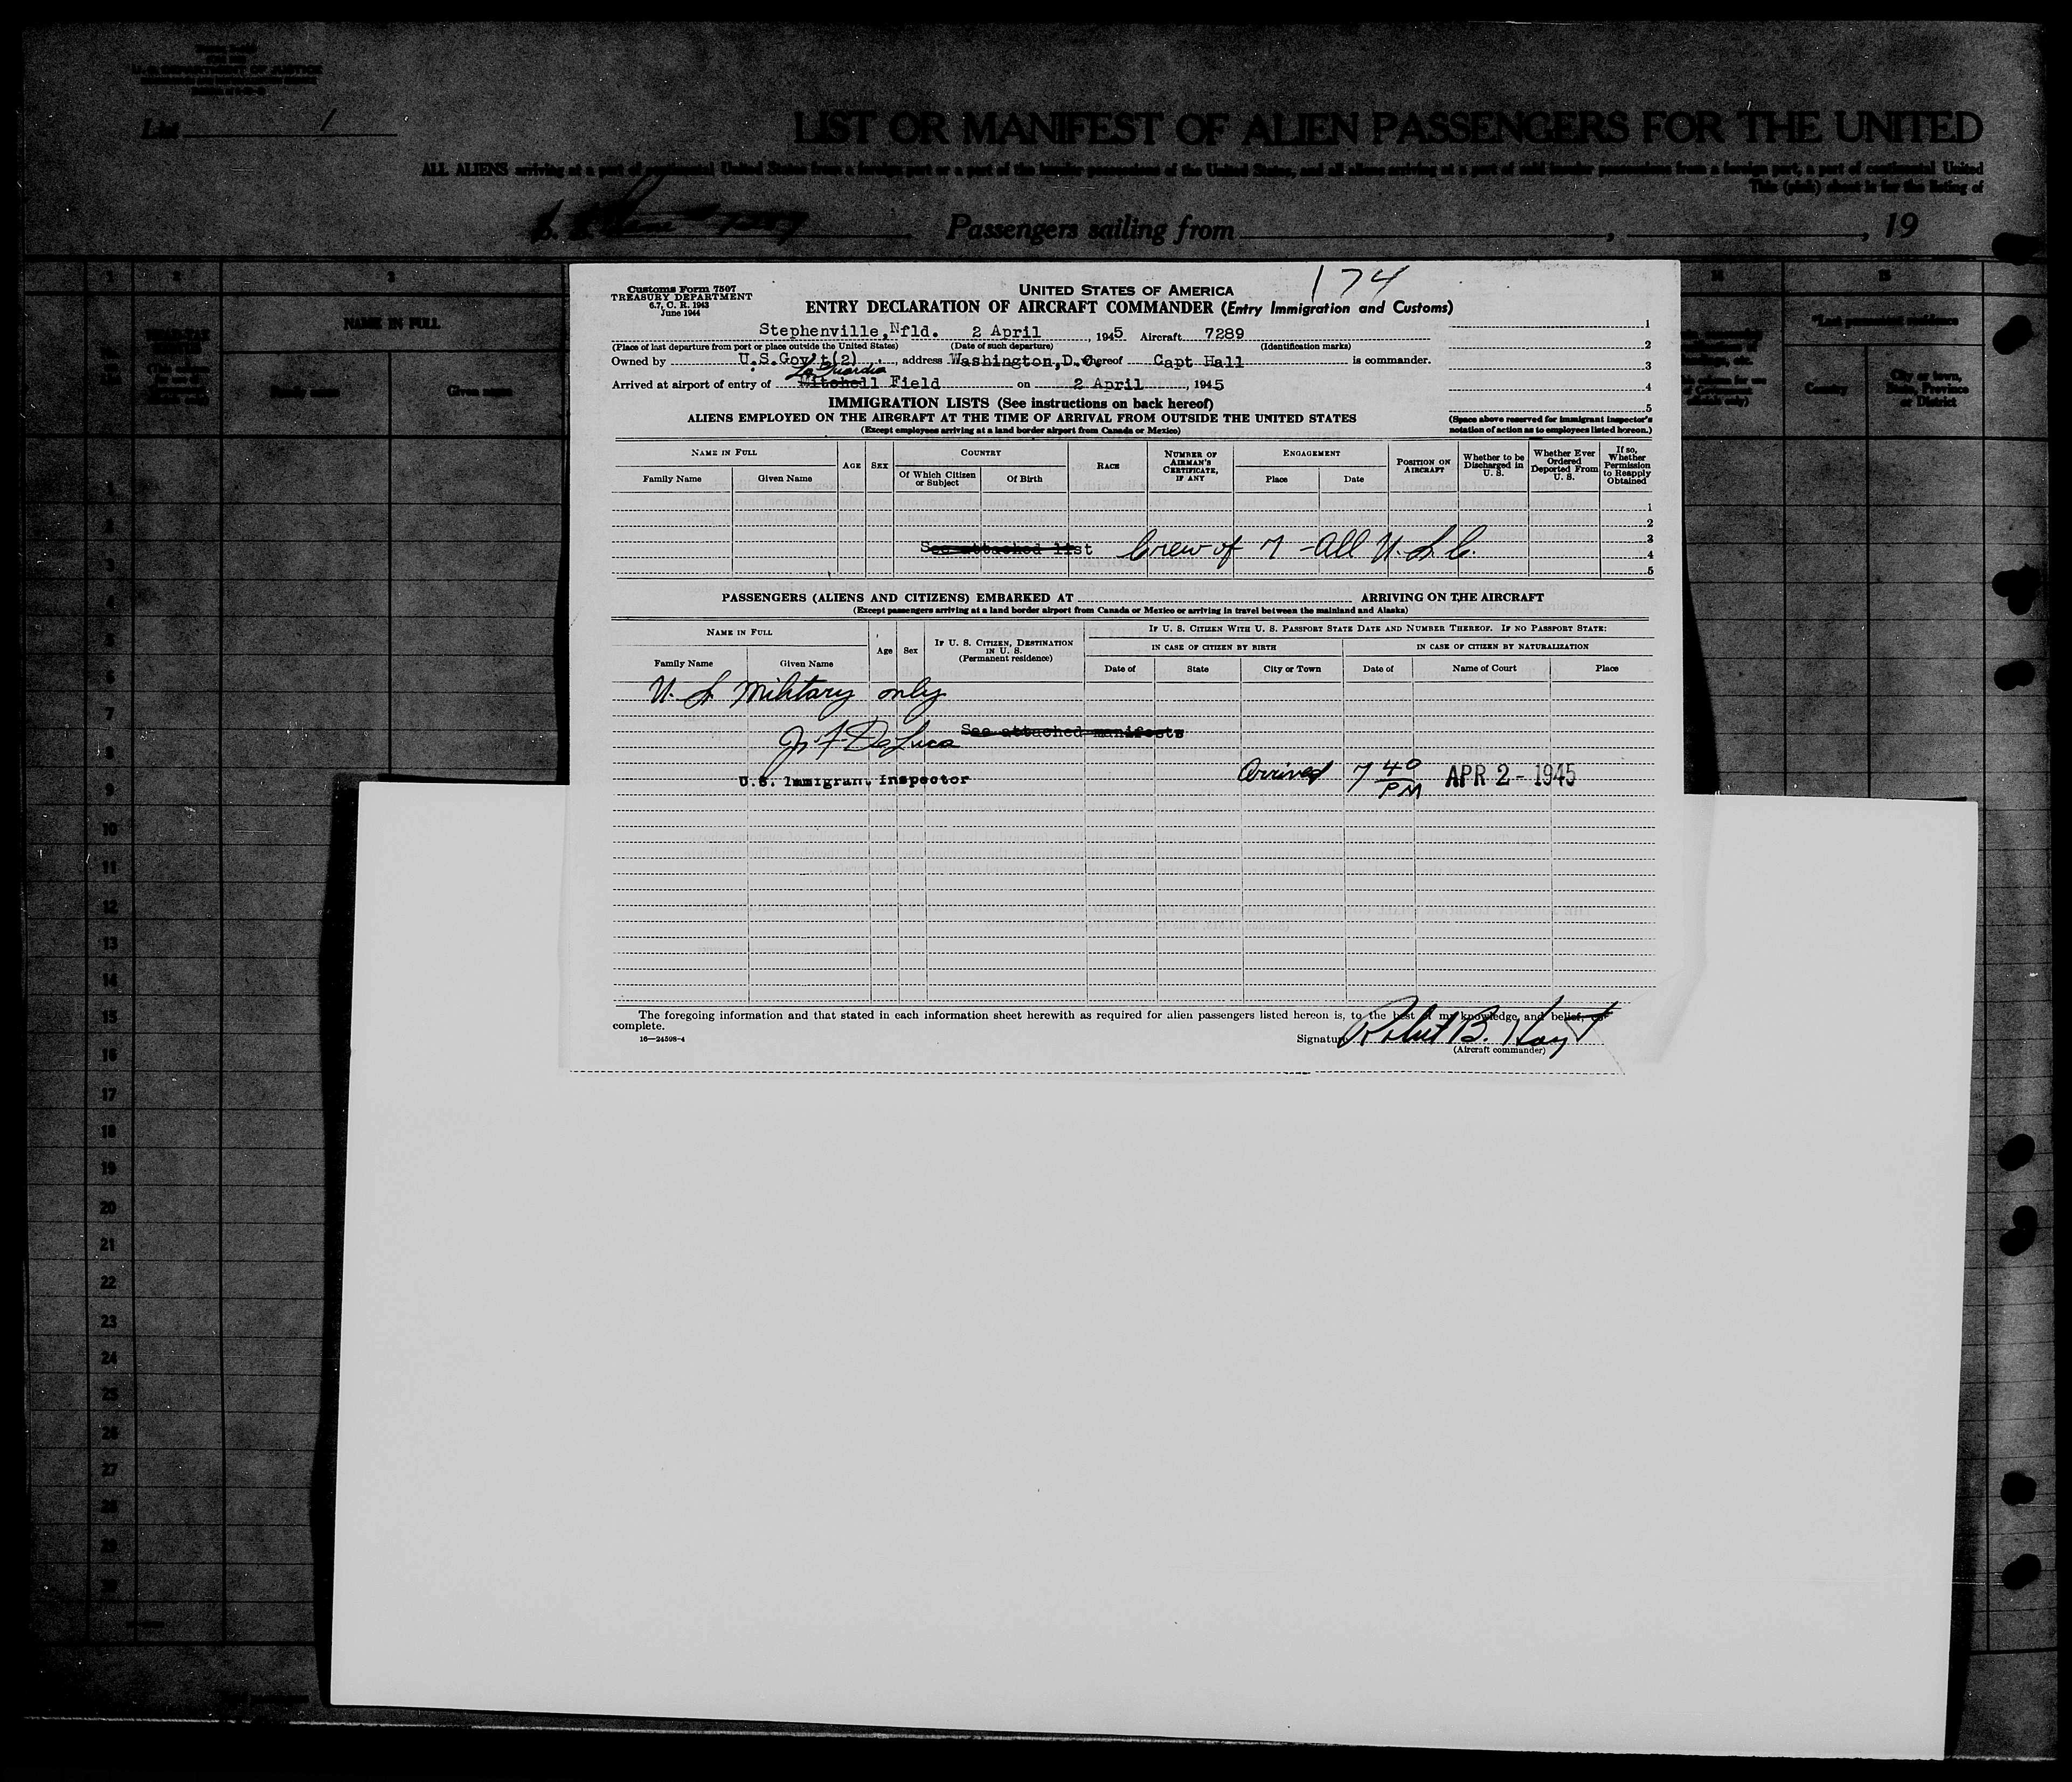 List 1
LIST OR MANIFEST OF ALIEN PASSENGERS FOR THE UNITED
ALL ALIENS arriving at a port of continental United States from a foreign port or a port of the insular possessions of the United States, and all aliens arriving at a port of said insular possessions from a foreign port, a port of continental United
This (pink) sheet is for the listing of
Passengers sailing from , , 19
1 2 3
NAME IN FULL
Family name Given name
15
Country
City or town, State, Province or District
174
Customs Form 7507
TREASURY DEPARTMENT
6.7, C. R. 1943
June 1944
UNITED STATES OF AMERICA
ENTRY DECLARATION OF AIRCRAFT COMMANDER (Entry Immigration and Customs)
Stephenville, Nfld. 2 April , 1945 Aircraft 7289
(Place of last departure from port or place outside the United States) (Date of such departure) (Identification marks)
Owned by U.S.Gov't(2) , address Washington,D.C. thereof Capt Hall is commander.
La Guardia
Arrived at airport of entry of Mitchell Field on 2 April , 1945
1
2
3
4
5
IMMIGRATION LISTS (See instructions on back hereof)
ALIENS EMPLOYED ON THE AIRCRAFT AT THE TIME OF ARRIVAL FROM OUTSIDE THE UNITED STATES
(Except employees arriving at a land border airport from Canada or Mexico)
(Space above reserved for immigrant inspector's notation of action as to employees listed hereon.)
NAME IN FULL
Family Name Given Name
AGE SEX
COUNTRY
Of Which Citizen or Subject Of Birth
RACE
NUMBER OF AIRMAN'S CERTIFICATE, IF ANY
ENGAGEMENT
Place Date
POSITION ON AIRCRAFT
Whether to be Discharged in U. S.
Whether Ever Ordered Deported From U. S.
If so, Whether Permission to Reapply Obtained
1
2
3
See attached list Crew of 7 - All U. S. C.
4
5
PASSENGERS (ALIENS AND CITIZENS) EMBARKED AT ARRIVING ON THE AIRCRAFT
(Except passengers arriving at a land border airport from Canada or Mexico or arriving in travel between the mainland and Alaska)
NAME IN FULL
Family Name Given Name
Age Sex
IF U. S. CITIZEN, DESTINATION IN U. S.
(Permanent residence)
IF U. S. CITIZEN WITH U. S. PASSPORT STATE DATE AND NUMBER THEREOF. IF NO PASSPORT STATE:
IN CASE OF CITIZEN BY BIRTH IN CASE OF CITIZEN BY NATURALIZATION
Date of State City or Town Date of Name of Court Place
U. S. Military only
J. F. DeLuca See attached manifests
U.S. Immigrant Inspector
Arrived 7 40 PM APR 2 - 1945
The foregoing information and that stated in each information sheet herewith as required for alien passengers listed hereon is, to the best of my knowledge and belief,
complete.
16—24598-4
Signature Robert B. Hoyt
(Aircraft commander)
1
2
3
4
5
6
7
8
9
10
11
12
13
14
15
16
17
18
19
20
21
22
23
24
25
26
27
28
29